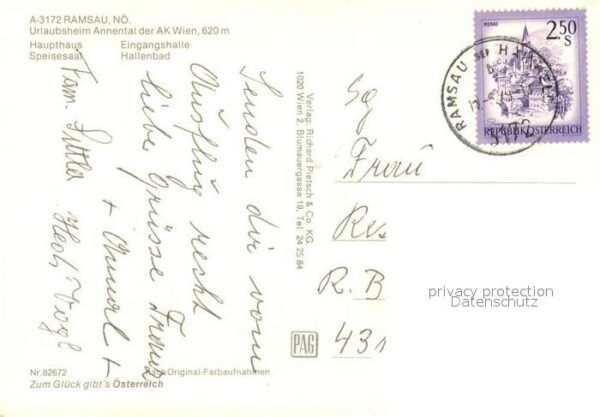 A-3172 RAMSAU, NÖ.
Urlaubsheim Annental der AK Wien, 620 m
Haupthaus Eingangshalle
Speisesaal Hallenbad
Senden dir vom
Ausflug recht
liebe Grüsse Franz
+ +
Fam.
Hedi Vogl
Verlag: Richard Pietsch & Co. KG
1020 Wien 2, Blumauergasse 19, Tel. 24 25 84
PAG
MURAU
2.50
S
REPUBLIK ÖSTERREICH
RAMSAU BEI
3172
Sg
Frau
Res
R. B
431
privacy protection
Datenschutz
Nr. 82672 nach Original-Farbaufnahmen
Zum Glück gibt's Österreich